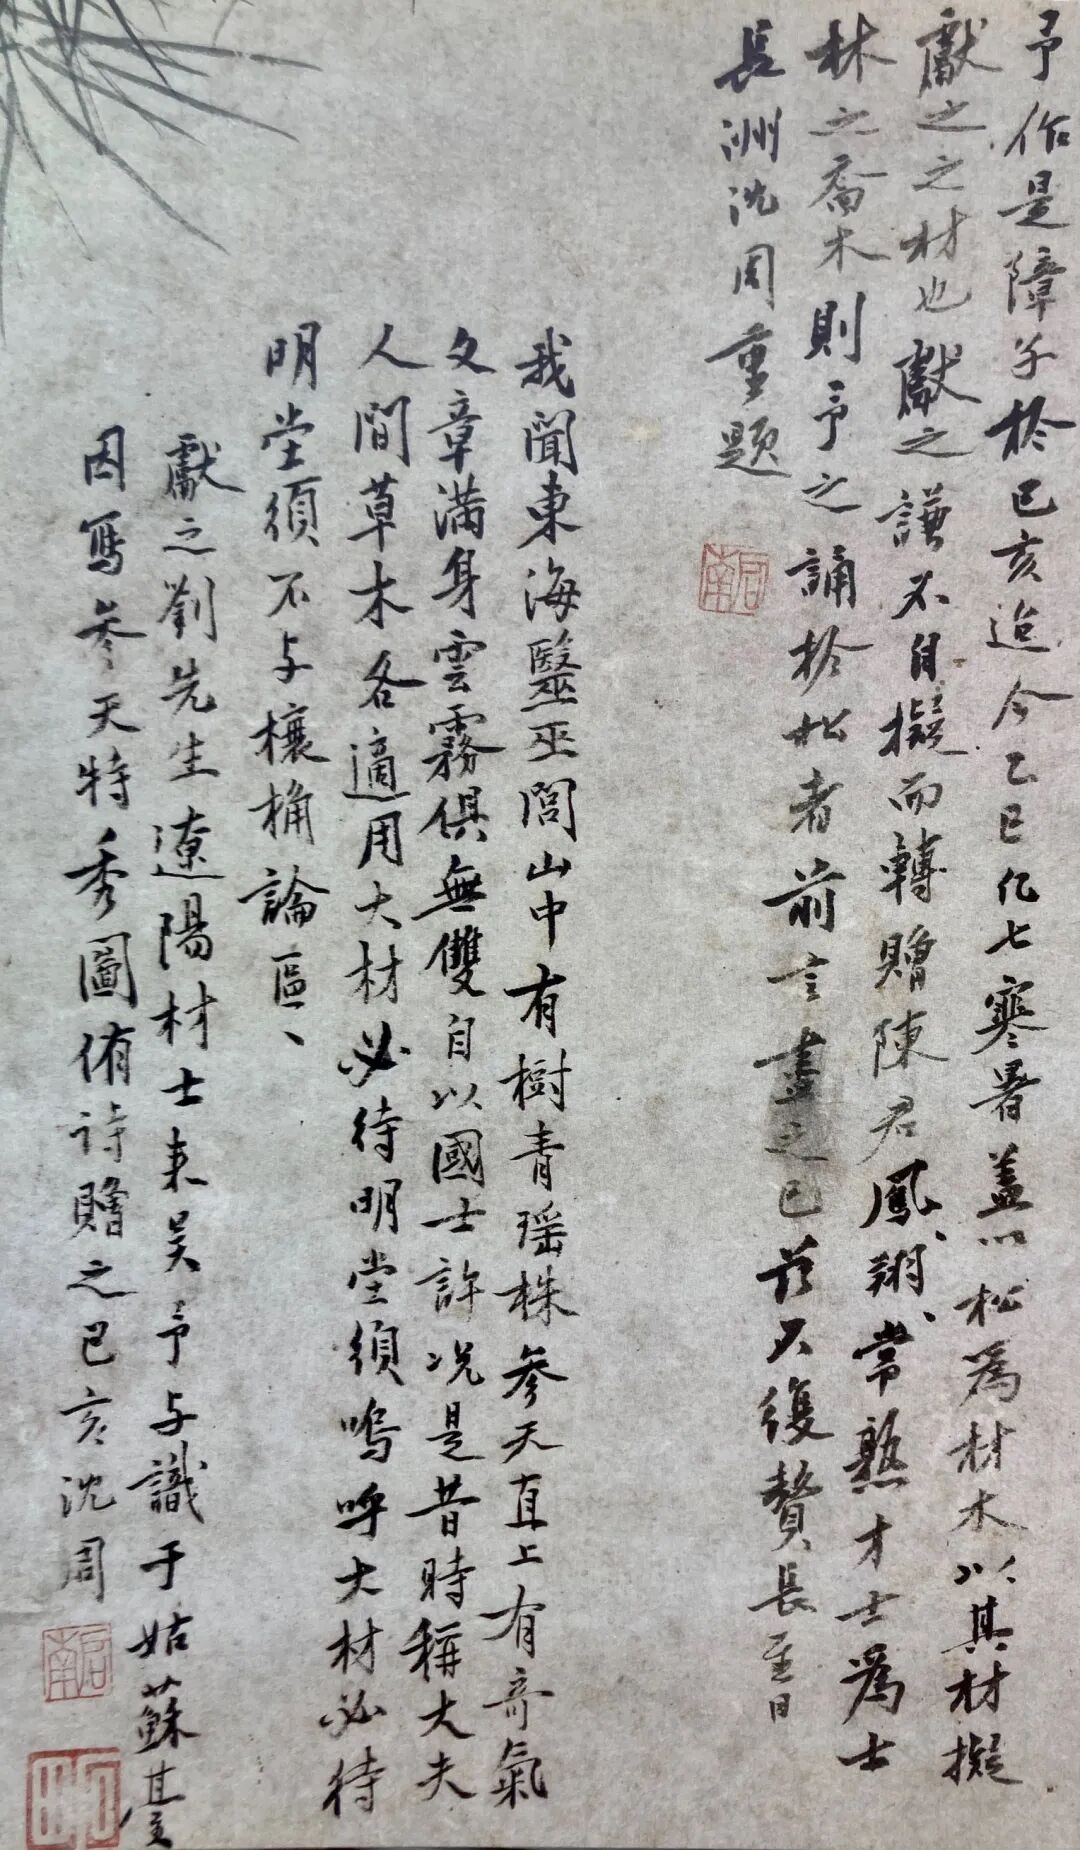 予作是障子於己亥迨今乙巳凡七寒暑蓋以松為材木以其材擬
獻之之材也獻之謙不自擬而轉贈陳君鳳翔常熟才士為士
林之喬木則予之誦於松者前言盡之已茲不復贅長至日
長洲沈周重題
啟南
我聞東海醫巫閭山中有樹青瑶株參天直上有奇氣
文章滿身雲霧俱無雙自以國士許況是昔時稱大夫
人間草木各適用大材必待明堂須嗚呼大材必待
明堂須不与欀桷論區〻
獻之劉先生遼陽材士来吴予与識于姑蘇臺
因寫參天特秀圖侑詩贈之己亥沈周
啟南